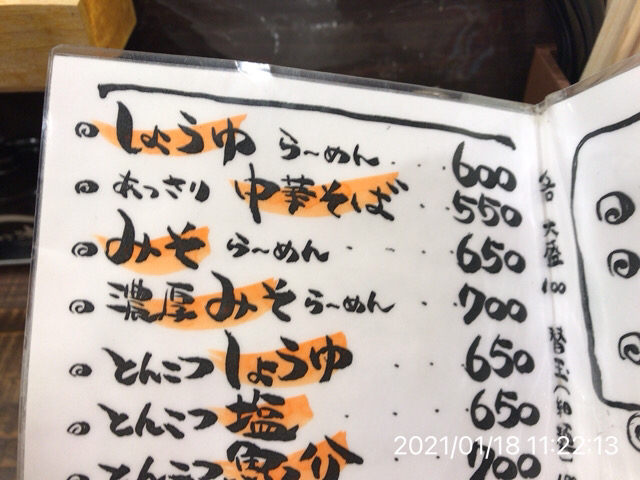 しょうゆ らーめん 600
あっさり 中華そば 550
みそ らーめん 650
濃厚みそらーめん 700
とんこつ しょうゆ 650
とんこつ 塩 650
とんこつ 魚介 700
各 大盛 100
替玉
2021/01/18 11:22:13